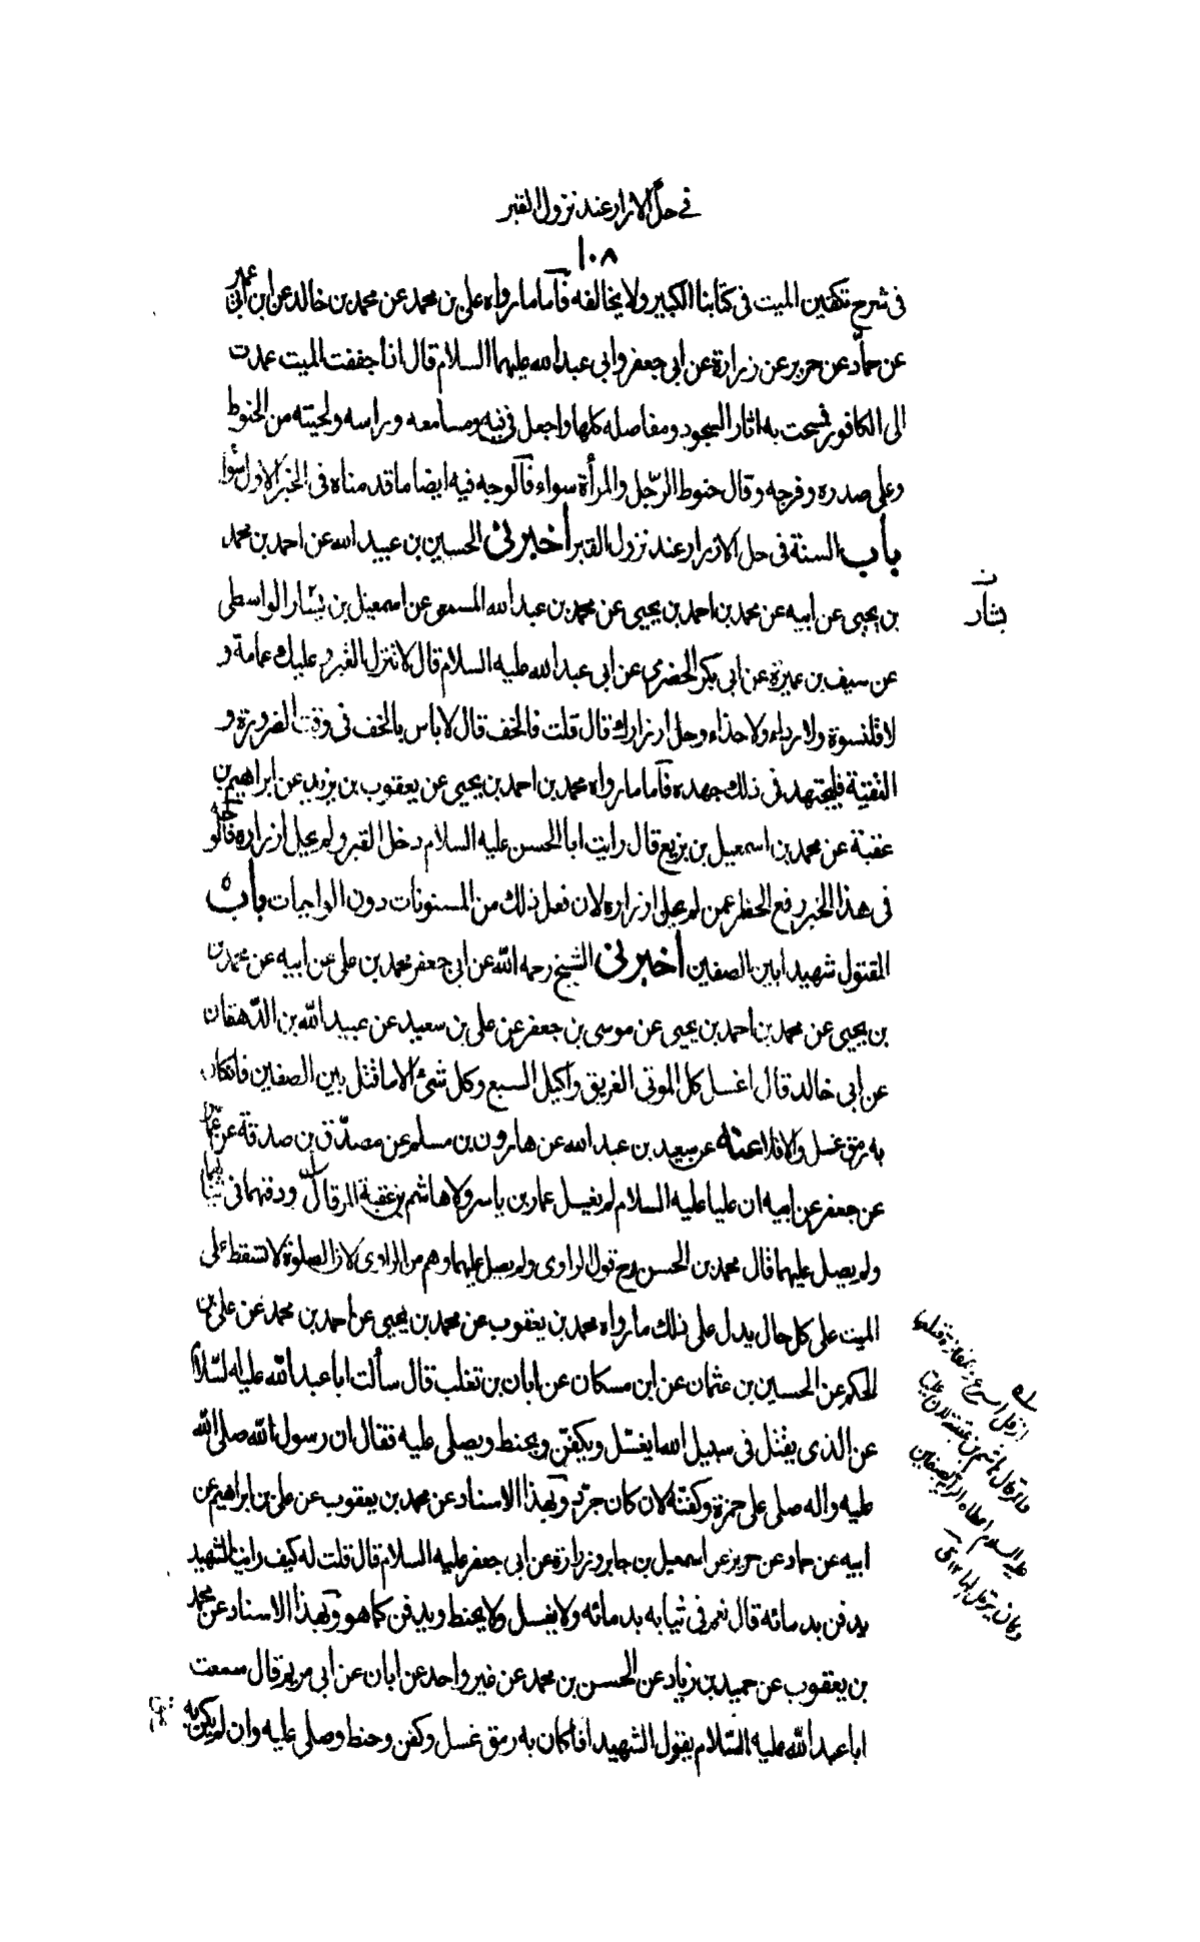 في حل الازرار عند نزول القبر
١٠٨
فى شرح تكفين الميت فى كتابنا الكبير ولا يخالفه فاما ما رواه على بن محمد عن محمد بن خالد عن ابن ابى عمير
عن حماد عن حريز عن زرارة عن ابى جعفر وابى عبد الله عليهما السلام قال اذا جففت الميت عمدت
الى الكافور فمسحت به اثار السجود ومفاصله كلها واجعل فى فيه ومسامعه وراسه ولحيته من الحنوط
وعلى صدره وفرجه وقال حنوط الرّجل والمرأة سواء فالوجه فيه ايضا ما قدمناه فى الخبر الاول سواء
باب السنة فى حل الازرار عند نزول القبر اخبرنى الحسين بن عبيد الله عن احمد بن محمد
بن يحيى عن ابيه عن محمد بن احمد بن يحيى عن محمد بن عبد الله المسمعى عن اسمعيل بن يسار الواسطى
عن سيف بن عميرة عن ابى بكر الحضرمى عن ابى عبد الله عليه السلام قال لا تنزل القبر وعليك عمامة و
لا قلنسوة ولا رداء ولا حذاء وحل ازرارك قال قلت فالخف قال لا باس بالخف فى وقت الضرورة و
التقية فليجتهد فى ذلك جهده فاما ما رواه محمد بن احمد بن يحيى عن يعقوب بن يزيد عن ابراهيم بن
عقبة عن محمد بن اسمعيل بن بزيع قال رايت ابا الحسن عليه السلام دخل القبر ولم يحل ازراره فالوجه
فى هذا الخبر رفع الحظر عمن لم يحل ازراره لان فعل ذلك من المسنونات دون الواجبات باب
المقتول شهيدا بين الصفين اخبرنى الشيخ رحمه الله عن ابى جعفر محمد بن على عن ابيه عن محمد بن
بن يحيى عن محمد بن احمد بن يحيى عن موسى بن جعفر عن على بن سعيد عن عبيد الله بن الدهقان
عن ابى خالد قال اغسل كل الموتى الغريق واكيل السبع وكل شئ الا ما قتل بين الصفين فان كان
به رمق غسل والا فلا عنه عن سعيد بن عبد الله عن هارون بن مسلم عن مصدّق بن صدقة عن عمّار
عن جعفر عن ابيه ان عليا عليه السلام لم يغسل عمار بن ياسر ولا هاشم بن عقبة المرقال ودفنهما فى ثيابهما
ولم يصل عليهما قال محمد بن الحسن رح قول الراوى ولم يصل عليهما وهم من الراوى لان الصلوة لا تسقط على
الميت على كل حال يدل على ذلك ما رواه محمد بن يعقوب عن محمد بن يحيى عن احمد بن محمد عن على بن
الحكم عن الحسين بن عثمان عن ابن مسكان عن ابان بن تغلب قال سألت ابا عبد الله عليه السلام
عن الذى يقتل فى سبيل الله ايغسّل ويكفّن ويحنط ويصلى عليه فقال ان رسول الله صلى الله
عليه واله صلى على حمزة وكفنه لانه كان جرّد وبهذا الاسناد عن محمد بن يعقوب عن على بن ابراهيم عن
ابيه عن حماد عن حريز عن اسمعيل بن جابر وزرارة عن ابى جعفر عليه السلام قال قلت له كيف رايت الشهيد
يدفن بدمائه قال نعم فى ثيابه بدمائه ولا يغسل ولا يحنط ويدفن كما هو وبهذا الاسناد عن محمد
بن يعقوب عن حميد بن زياد عن الحسن بن محمد عن غير واحد عن ابان عن ابى مريم قال سمعت
ابا عبد الله عليه السّلام يقول الشهيد اذا كان به رمق غسل وكفن وحنط وصلى عليه وان لم يكن به
ن
بشار